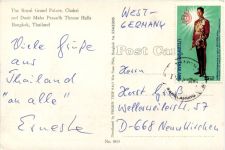 The Royal Grand Palace, Chakri
and Dusit Maha Prasarth Throne Halls
Bangkok, Thailand
Viele Grüße
aus
Thailand
"an alle"
Erneste
WEST-
GERMANY
Post Card
Herrn
Horst
Wellesweilerstr. 57
D-668 Neunkirchen